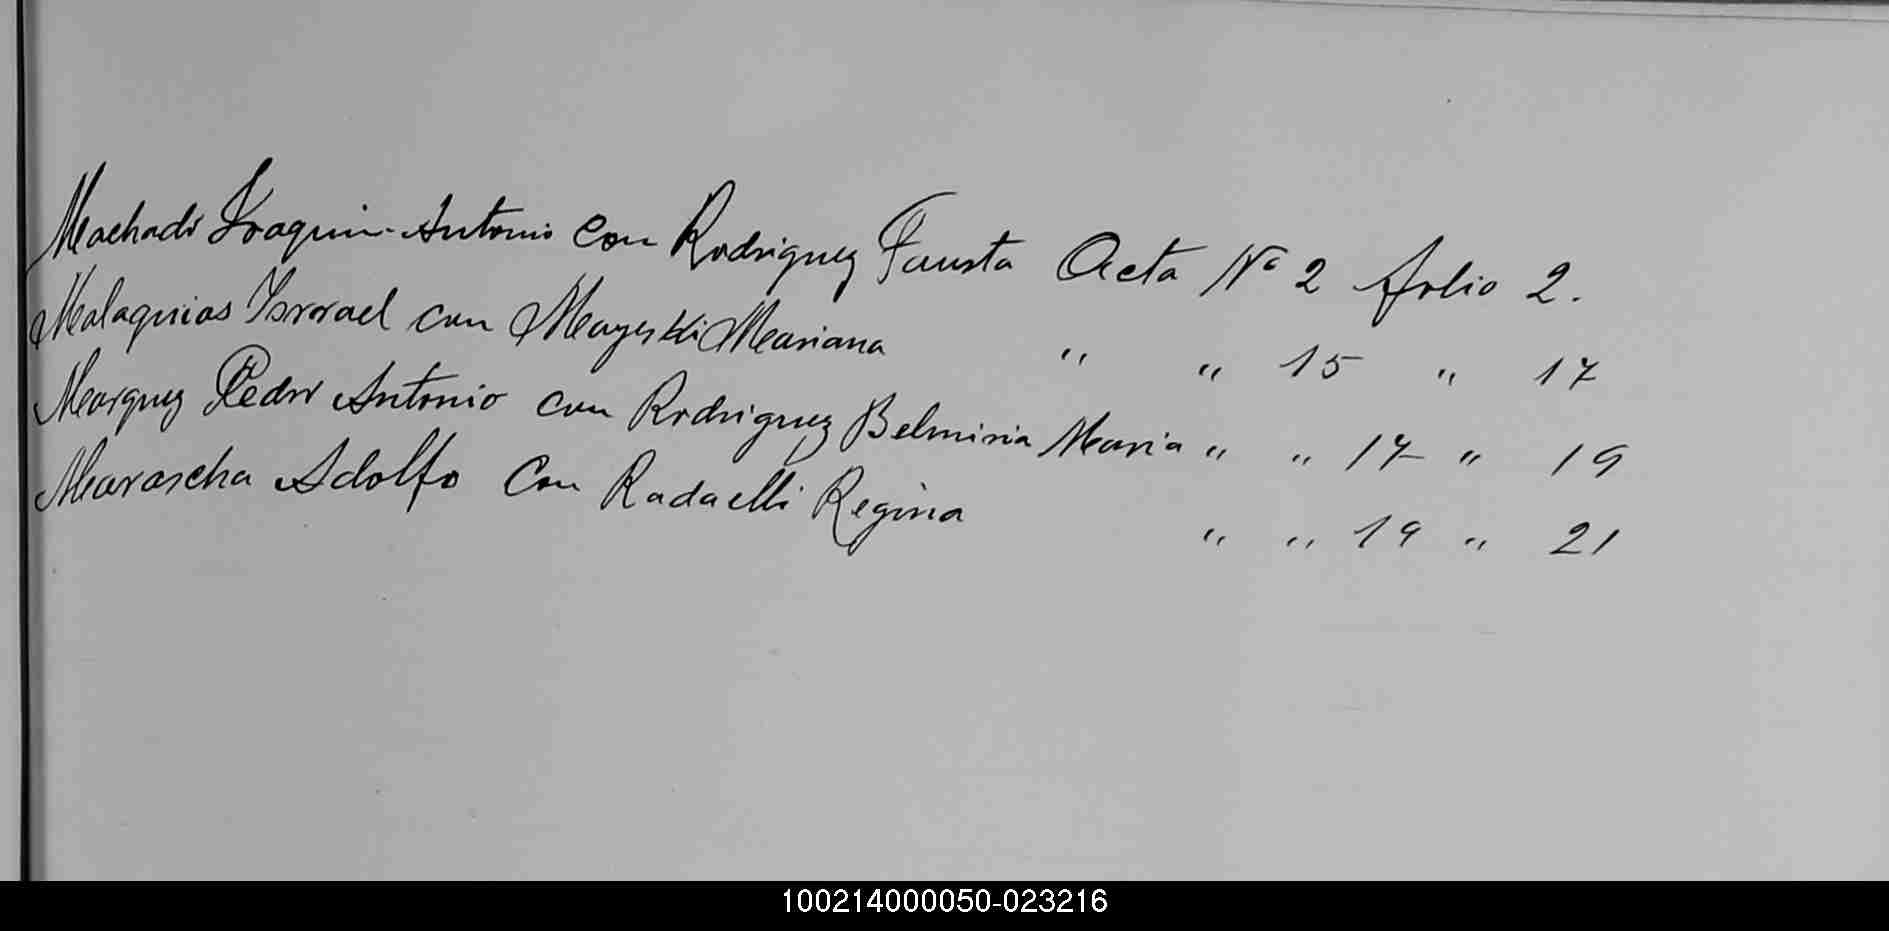 Machado Joaquin Antonio con Rodriguez Fausta Acta Nº 2 folio 2.
Malaquias Isrrael con Mayeski Mariana " " 15 " 17
Marquez Pedro Antonio con Rodriguez Belmiria Maria " " 17 " 19
Marascha Adolfo con Radaelli Regina " " 19 " 21
100214000050-023216